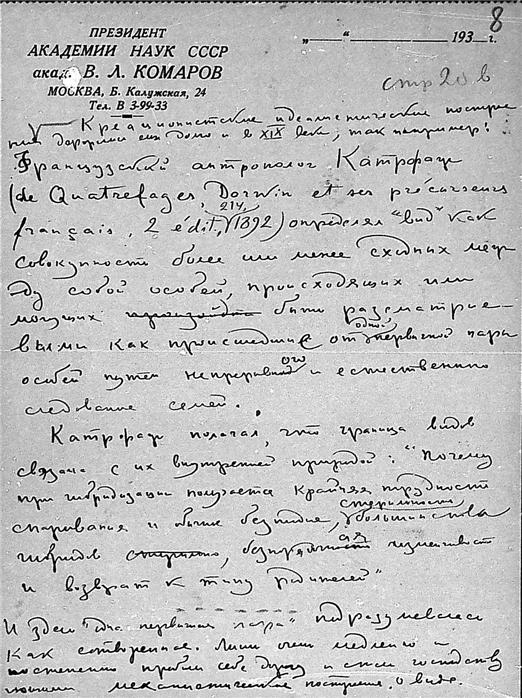 8
ПРЕЗИДЕНТ
АКАДЕМИИ НАУК СССР
акад. В. Л. КОМАРОВ
МОСКВА, Б. Калужская, 24
Тел. В 3-99-33
„ “ 193 г.
стр 20 в
Креационистские идеалистические построе
ния держались еще долго и в XIX веке; так например:
Французский антрополог Катрфаж
(de Quatrefages, Darwin et ses précurseurs
français, 2 édit, 214, 1892) определял "вид" как
совокупность более или менее сходных меж
ду собой особей, происходящих или
могущих быть рассматрив-
емыми как происшедшие от одной первичной пары
особей путем непрерывного и естественного
следования семей.
Катрфаж полагал, что граница видов
связана с их внутренней природой: "Почему
при гибридизации получается крайняя трудность
спаривания и обычное бесплодие, стерильность у большинства
гибридов, изменчивость
и возврат к типу родителей"
И здесь "одна первичная пара" подразумевалась
как сотворенное. Лишь очень медленно и
постепенно пробили себе дорогу и стали господству
ющими механистические построения о виде.